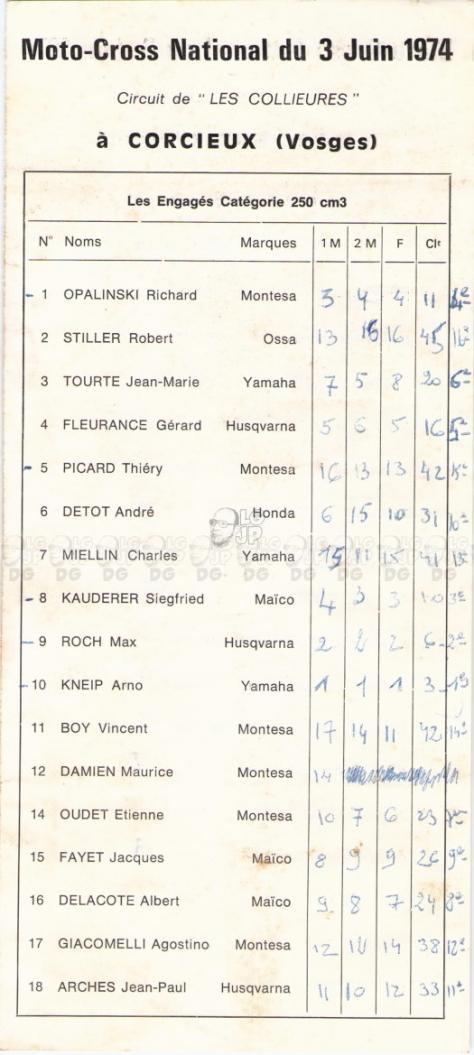 Moto-Cross National du 3 Juin 1974
Circuit de " LES COLLIEURES "
à CORCIEUX (Vosges)
Les Engagés Catégorie 250 cm3
N° Noms Marques 1 M 2 M F Clt
- 1 OPALINSKI Richard Montesa 3 4 4 11 4e
2 STILLER Robert Ossa 13 16 16 45 16e
3 TOURTE Jean-Marie Yamaha 7 5 8 20 6e
4 FLEURANCE Gérard Husqvarna 5 6 5 16 5e
- 5 PICARD Thiéry Montesa 16 13 13 42
6 DETOT André Honda 6 15 10 31 10e
7 MIELLIN Charles Yamaha 15 11 15 41
- 8 KAUDERER Siegfried Maïco 4 3 3 10 3e
- 9 ROCH Max Husqvarna 2 2 2 6 2e
- 10 KNEIP Arno Yamaha 1 1 1 3 1e
11 BOY Vincent Montesa 17 14 11 42 14e
12 DAMIEN Maurice Montesa 14
14 OUDET Etienne Montesa 10 7 6 23 7e
15 FAYET Jacques Maïco 8 9 9 26 9e
16 DELACOTE Albert Maïco 9 8 7 24 8e
17 GIACOMELLI Agostino Montesa 12 12 14 38 12e
18 ARCHES Jean-Paul Husqvarna 11 10 12 33 11e